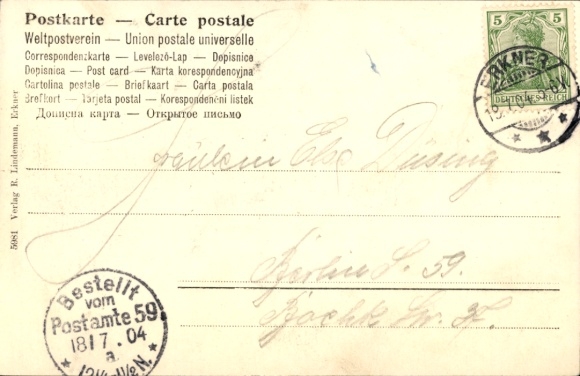 Postkarte — Carte postale
Weltpostverein — Union postale universelle
Correspondenzkarte — Levelező-Lap — Dopisnice
Dopisnica — Post card — Karta korespondencyjna
Cartolina postale — Briefkaart — Carta postala
Brefkort — Tarjeta postal — Korespondenční lístek
Дописна карта — Открытое письмо
5 5
DEUTSCHES REICH
ERKNER
5081 Verlag R. Lindemann, Erkner
Fräulein Else Düsing
Berlin S. 59.
Bestellt
vom
Postamte 59
18/7.04
a.